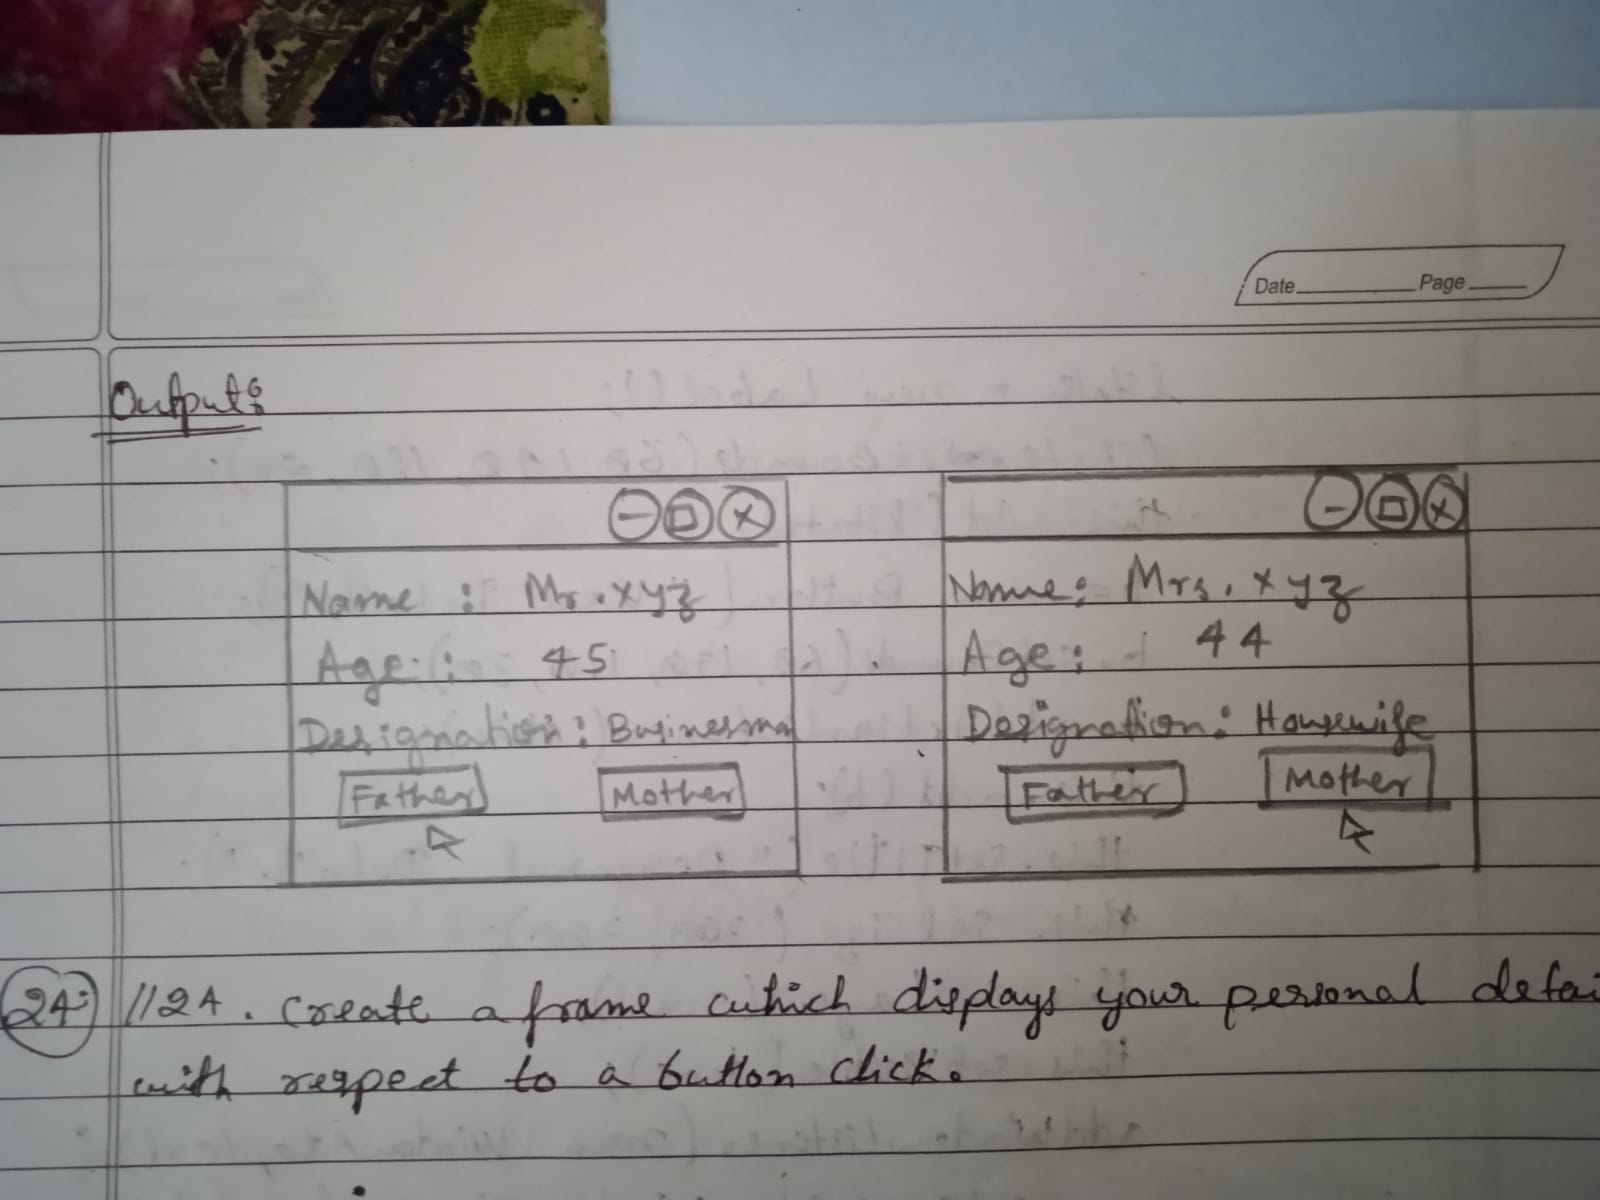 Date Page
Output:
Name : Mr. xyz
Age : 45
Designation : Businesma
Father Mother
Name: Mrs. xyz
Age: 44
Designation: Housewife
Father Mother
24. //24. Create a frame which displays your personal detai
with respect to a button click.